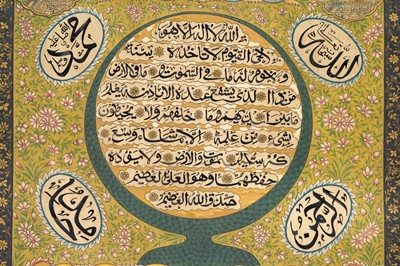 الله
محمد
الله لا اله الا هو
الحي القيوم لا تاخذه سنة
ولا نوم له ما في السموات وما في الارض
من ذا الذي يشفع عنده الا باذنه يعلم
ما بين ايديهم وما خلفهم ولا يحيطون
بشيء من علمه الا بما شاء وسع
كرسيه السموات والارض ولا يؤده
حفظهما وهو العلي العظيم
صدق الله العظيم
الرحمن